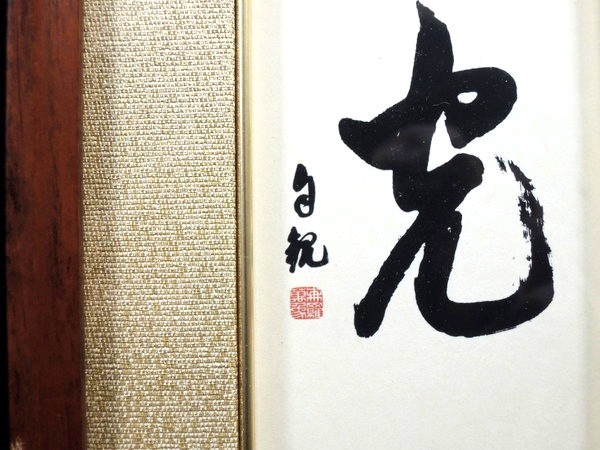 光
自観